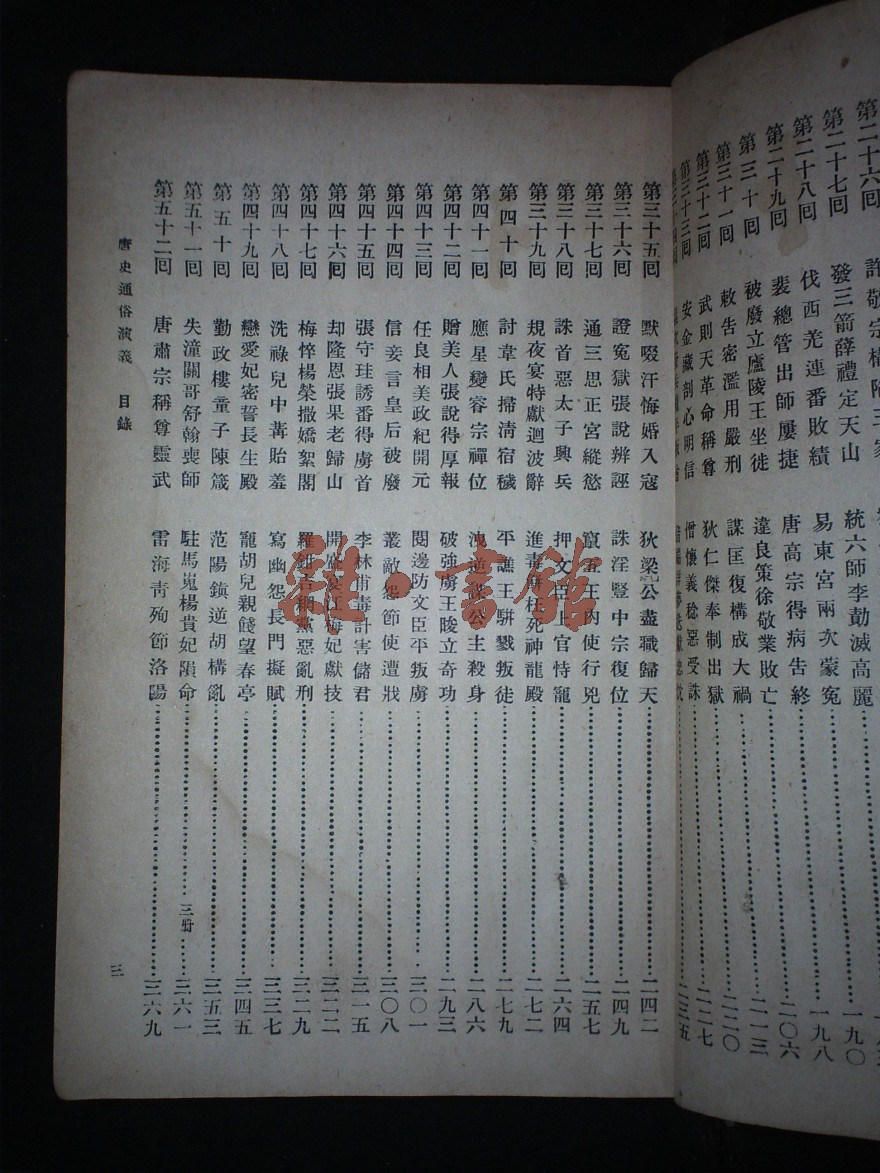 第二十六回 許敬宗構陷三家
第二十七回 發三箭薛禮定天山 統六師李勣滅高麗 一九〇
第二十八回 伐西羌連番敗績 易東宮兩次蒙冤 一九八
第二十九回 裴總管出師屢捷 唐高宗得病告終 二〇六
第三十回 被廢立廬陵王坐徙 違良策徐敬業敗亡 二一三
第三十一回 敕告密濫用嚴刑 謀匡復構成大禍 二二〇
第三十二回 武則天革命稱尊 狄仁傑奉制出獄 二二七
第三十三回 安金藏剖心明信 僧懷義稔惡受誅 二三五
第三十五回 默啜汗悔婚入寇 狄梁公盡職歸天 二四二
第三十六回 證冤獄張說辨誣 誅淫豎中宗復位 二四九
第三十七回 通三思正宮縱慾 竄五王內使行兇 二五七
第三十八回 誅首惡太子興兵 押文臣上官恃寵 二六四
第三十九回 規夜宴特獻迴波辭 進毒餅枉死神龍殿 二七二
第四十回 討韋氏掃清宿穢 平譙王駢戮叛徒 二七九
第四十一回 應星變睿宗禪位 洩逆謀公主殺身 二八六
第四十二回 贈美人張說得厚報 破強虜王晙立奇功 二九三
第四十三回 任良相美政紀開元 閱邊防文臣平叛虜 三〇一
第四十四回 信妾言皇后被廢 叢敵怨節使遭戕 三〇八
第四十五回 張守珪誘番得虜首 李林甫毒計害儲君 三一五
第四十六回 却隆恩張果老歸山 開盛宴江梅妃獻技 三二二
第四十七回 梅悴楊榮撒嬌絮閣 羅鉗吉網黨惡亂刑 三二九
第四十八回 洗祿兒中冓貽羞 寫幽怨長門擬賦 三三七
第四十九回 戀愛妃密誓長生殿 寵胡兒親餞望春亭 三四五
第五十回 勤政樓童子陳箴 范陽鎮逆胡構亂 三五三
第五十一回 失潼關哥舒翰喪師 駐馬嵬楊貴妃隕命 三冊 三六一
第五十二回 唐肅宗稱尊靈武 雷海青殉節洛陽 三六九
唐史通俗演義 目錄 三
雜·書館